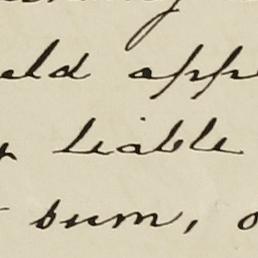 eld app
liable
sum, o